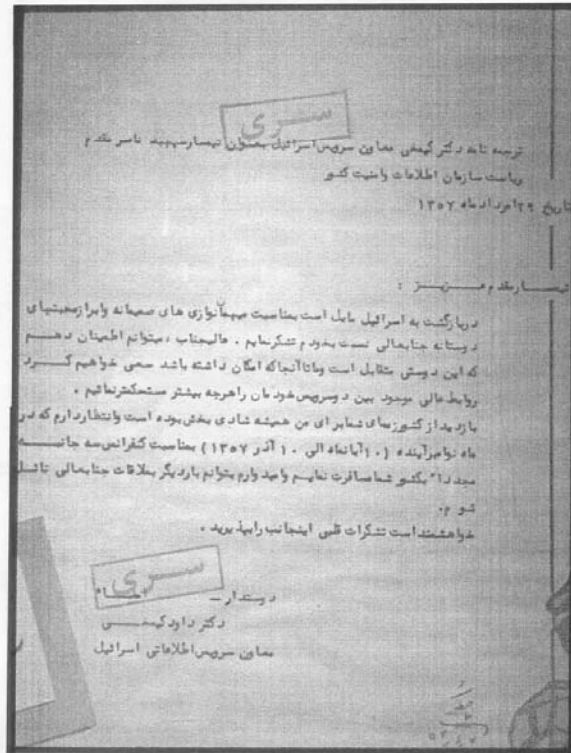 سری
ترجمه نامه دکتر کیمخی معاون سرویس اسرائیل بعنوان تیمسار سپهبد ناصر مقدم
ریاست سازمان اطلاعات وامنیت کشور
تاریخ ۲۹ امرداد ماه ۱۳۵۷
تیمسار مقدم عزیز :
دربازگشت به اسرائیل مایل است بمناسبت میهمانوازی های صمیمانه وابراز محبتهای
دوستانه جنابعالی نسبت بخودم تشکرنمایم . عالیجناب ، میتوانم اطمینان دهم
که این دوستی متقابل است وماتاآنجاکه امکان داشته باشد سعی خواهیم کرد
روابط عالی موجود بین دوسرویس خودمان راهرچه بیشتر مستحکمترنمائیم .
بازدید از کشورزیبای شمابرای من همیشه شادی بخش بوده است وانتظاردارم که در
ماه نوامبرآینده (۱۰ آبانماه الی ۱۰ آذر ۱۳۵۷) بمناسبت کنفرانس سه جانبه
مجددا" بکشور شمامسافرت نمایم وامیدوارم بتوانم باردیگر بملاقات جنابعالی نائل
شوم.
خواهشمند است تشکرات قلبی اینجانب رابپذیرید .
سری
دوستدار ــ
دکتر داود کیمخی
معاون سرویس اطلاعاتی اسرائیل